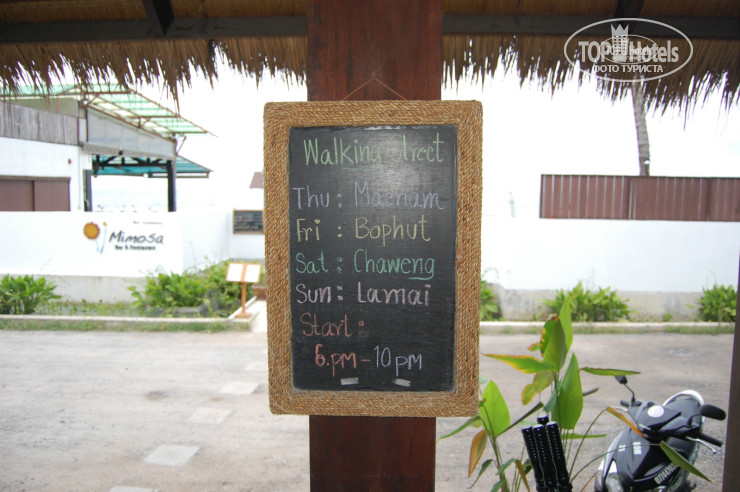 Walking Street
Thu : Maenam
Fri : Bophut
Sat : Chaweng
Sun : Lamai
Start :
6.pm - 10pm
Mimosa
Bar & Restaurant
TOPHotels
ФОТО ТУРИСТА